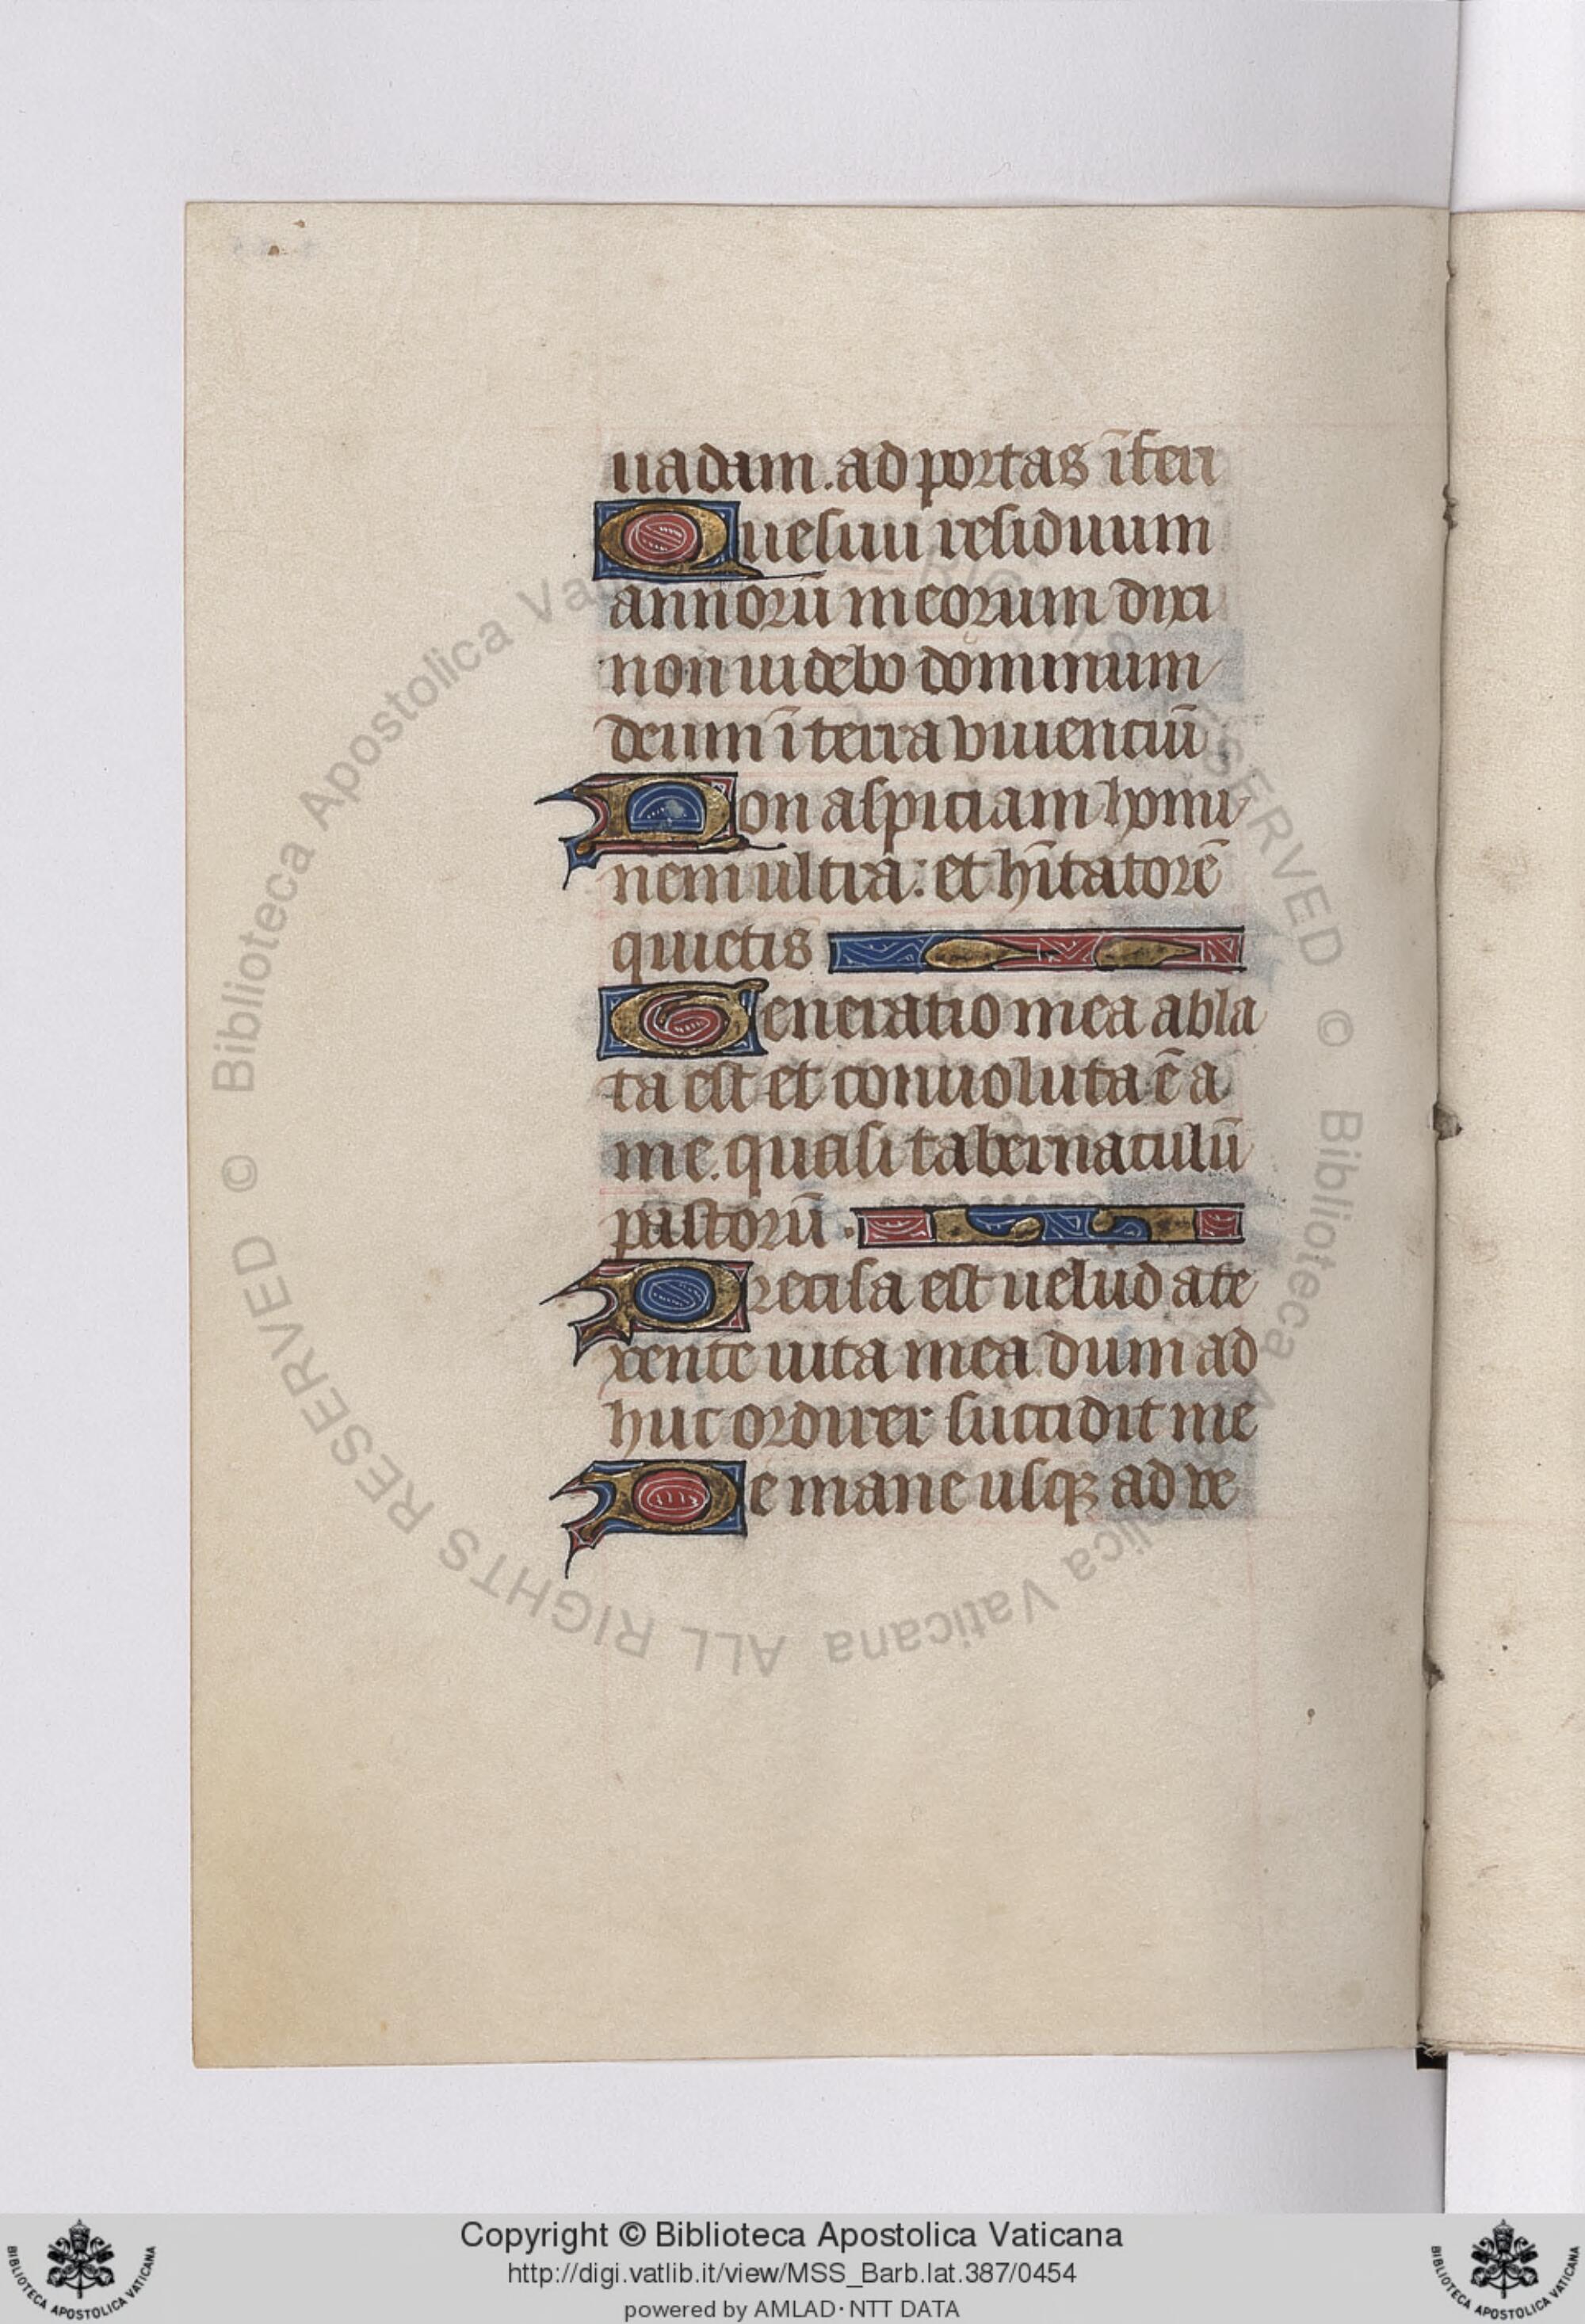 uadam. ad portas īferi
Quesiui residuum
annorū meorum dixi
non uidebo dominum
deum ī terra viuenciū
Non aspiciam homi
nem ultra: et hītatorē
quietis
Generatio mea abla
ta est et conuoluta ē a
me. quasi tabernaculū
pastorū.
Precisa est uelud a te
xente uita mea dum ad
huc ordirer succidit me
De mane usqꝫ ad ve
© Biblioteca Apostolica Vaticana ALL RIGHTS RESERVED
© Biblioteca Apostolica Vaticana ALL RIGHTS RESERVED
Copyright © Biblioteca Apostolica Vaticana
http://digi.vatlib.it/view/MSS_Barb.lat.387/0454
powered by AMLAD·NTT DATA
BIBLIOTECA APOSTOLICA VATICANA
BIBLIOTECA APOSTOLICA VATICANA